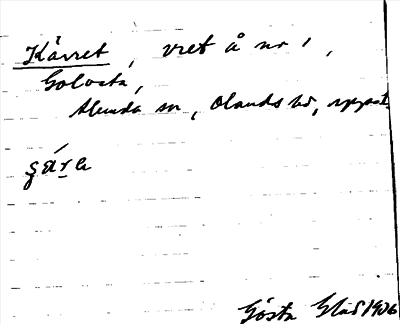 Kärret, vret å nr 1,
Golvsta,
Alunda sn, Olands hd, Uppsl.
Gösta Glad 1936